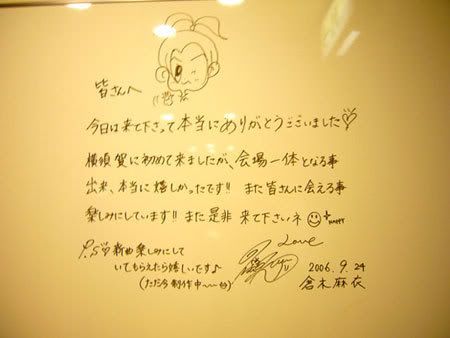 皆さんへ
今日は来て下さって本当にありがとうございました♡
横須賀に初めて来ましたが、会場一体となる事
出来、本当に嬉しかったです!! また皆さんに会える事
楽しみにしています!! また是非 来て下さいネ☺ HAPPY
P.S♡新曲楽しみにして
いてもらえたら嬉しいです♪
(ただ今制作中〜〜
Love
2006.9.24
倉木麻衣